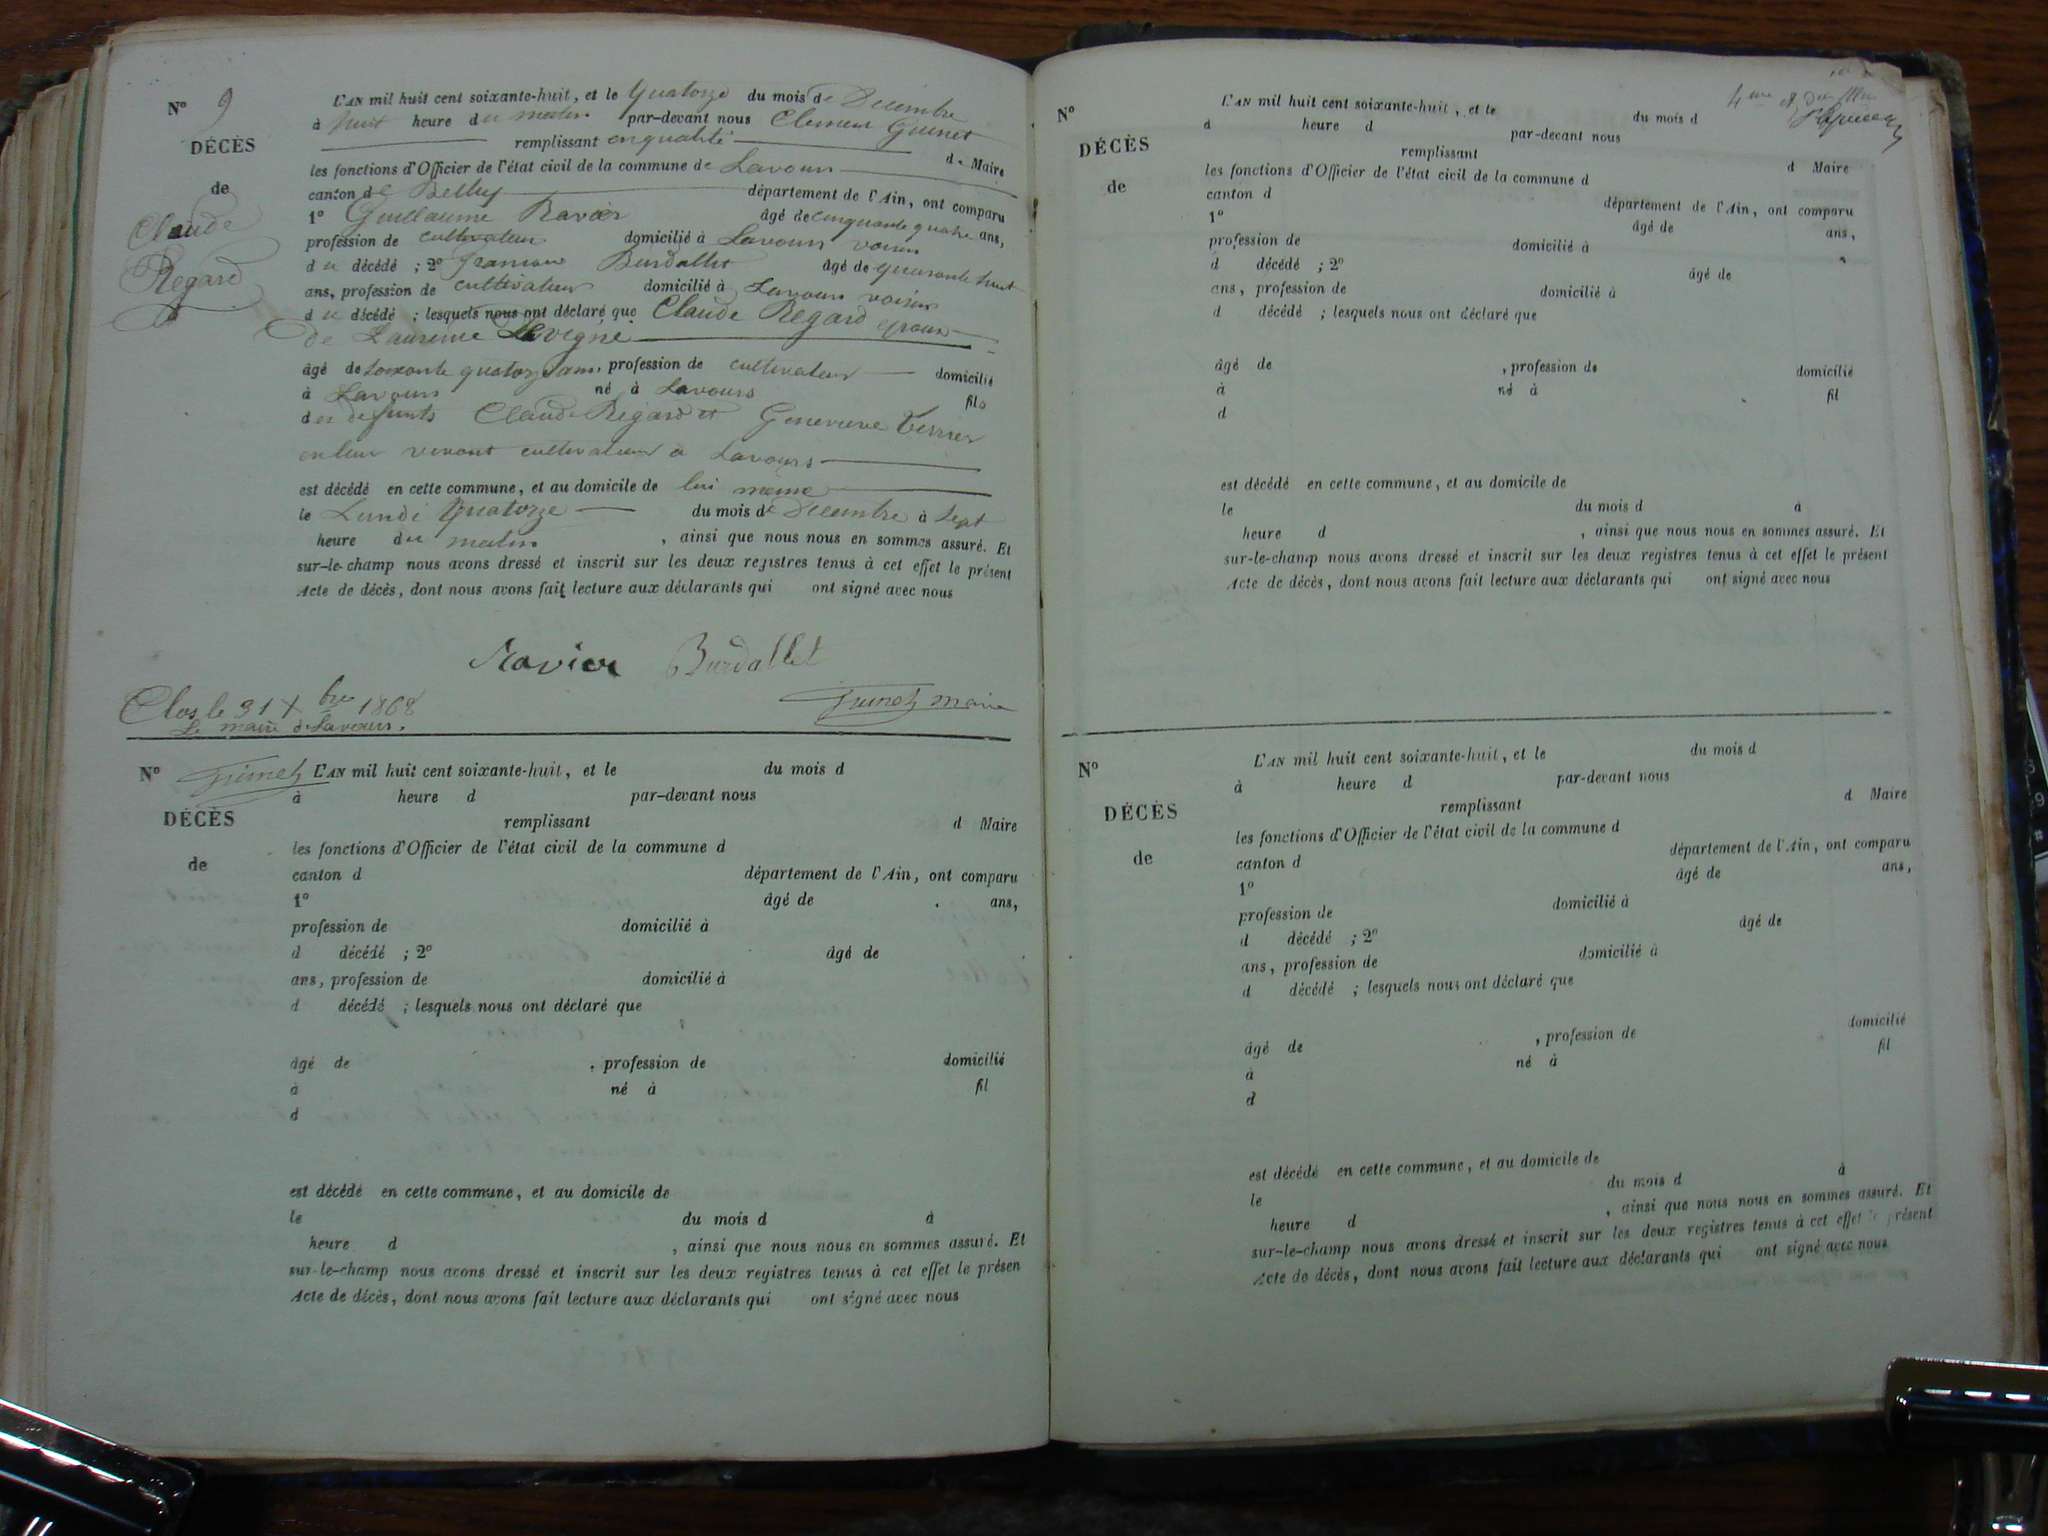 N° 9
DÉCÈS
de
Claude
Regard
L'AN mil huit cent soixante-huit, et le Quatorze du mois de Decembre
à huit heure du matin par-devant nous Clement Guinet
remplissant en qualité de Maire
les fonctions d'Officier de l'état civil de la commune de Lavours
canton de Belley département de l'Ain, ont comparu
1° Guillaume Ravier âgé de cinquante quatre ans,
profession de cultivateur domicilié à Lavours voisin
du décédé ; 2° françois Burdallet âgé de quarante huit
ans, profession de cultivateur domicilié à Lavours voisin
du décédé ; lesquels nous ont déclaré que Claude Regard epoux
de Laurence
âgé de soixante quatorze ans, profession de cultivateur domicilié
à Lavours né à Lavours fils
des defunts Claude Regard et Genevieve Terrier
en leur vivant cultivateurs a Lavours
est décédé en cette commune, et au domicile de lui meme
le Lundi Quatorze du mois de Decembre à Sept
heure du matin , ainsi que nous nous en sommes assuré. Et
sur-le-champ nous avons dressé et inscrit sur les deux registres tenus à cet effet le présent
Acte de décès, dont nous avons fait lecture aux déclarants qui ont signé avec nous
Ravier Burdallet
Guinet maire
Clos le 31 Xbre 1868
Le maire de Lavours.
Guinet
N°
DÉCÈS
de
L'AN mil huit cent soixante-huit, et le du mois d
à heure d par-devant nous
remplissant d Maire
les fonctions d'Officier de l'état civil de la commune d
canton d département de l'Ain, ont comparu
1° âgé de ans,
profession de domicilié à
d décédé ; 2° âgé de
ans, profession de domicilié à
d décédé ; lesquels nous ont déclaré que
âgé de , profession de domicilié
à né à fil
d
est décédé en cette commune, et au domicile de
le du mois d à
heure d , ainsi que nous nous en sommes assuré. Et
sur-le-champ nous avons dressé et inscrit sur les deux registres tenus à cet effet le présen
Acte de décès, dont nous avons fait lecture aux déclarants qui ont signé avec nous
N°
DÉCÈS
de
L'AN mil huit cent soixante-huit, et le du mois d
à heure d par-devant nous
remplissant d Maire
les fonctions d'Officier de l'état civil de la commune d
canton d département de l'Ain, ont comparu
1° âgé de ans,
profession de domicilié à
d décédé ; 2° âgé de
ans, profession de domicilié à
d décédé ; lesquels nous ont déclaré que
âgé de , profession de domicilié
à né à fil
d
est décédé en cette commune, et au domicile de
le du mois d à
heure d , ainsi que nous nous en sommes assuré. Et
sur-le-champ nous avons dressé et inscrit sur les deux registres tenus à cet effet le présent
Acte de décès, dont nous avons fait lecture aux déclarants qui ont signé avec nous
N°
DÉCÈS
de
L'AN mil huit cent soixante-huit, et le du mois d
à heure d par-devant nous
remplissant d Maire
les fonctions d'Officier de l'état civil de la commune d
canton d département de l'Ain, ont comparu
1° âgé de ans,
profession de domicilié à
d décédé ; 2° âgé de
ans, profession de domicilié à
d décédé ; lesquels nous ont déclaré que
âgé de , profession de domicilié
à né à fil
d
est décédé en cette commune, et au domicile de
le du mois d à
heure d , ainsi que nous nous en sommes assuré. Et
sur-le-champ nous avons dressé et inscrit sur les deux registres tenus à cet effet le présent
Acte de décès, dont nous avons fait lecture aux déclarants qui ont signé avec nous